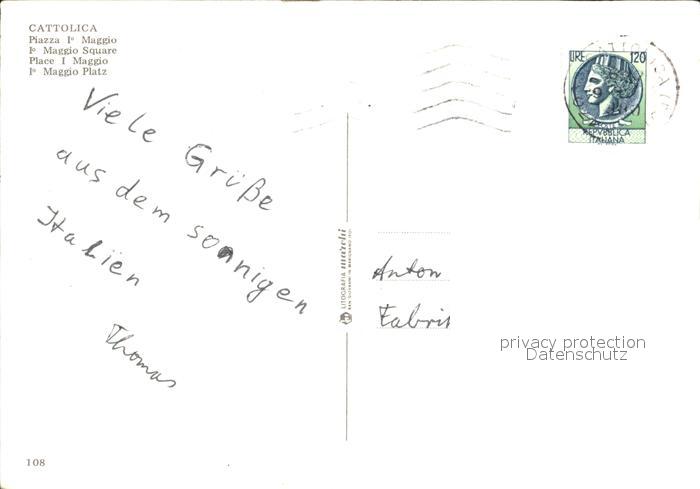 CATTOLICA
Piazza Iº Maggio
Iº Maggio Square
Place I Maggio
Iº Maggio Platz
Viele Grüße
aus dem sonnigen
Italien
Thomas
LIRE 120
REPVBBLICA
ITALIANA
LITOGRAFIA marchi
Anton
Fabris
privacy protection
Datenschutz
108